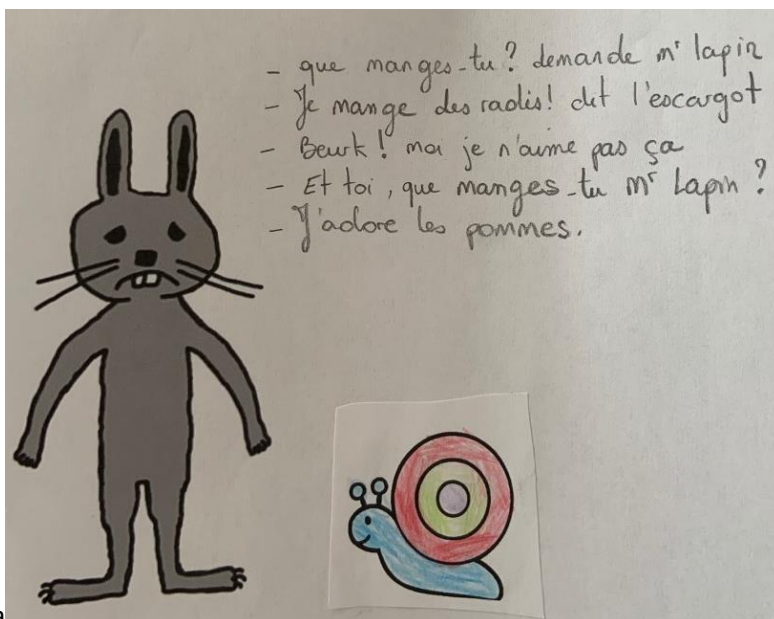 - que manges-tu? demande mr lapin
- Je mange des radis! dit l'escargot
- Beurk! moi je n'aime pas ça
- Et toi, que manges-tu Mr Lapin ?
- J'adore les pommes.